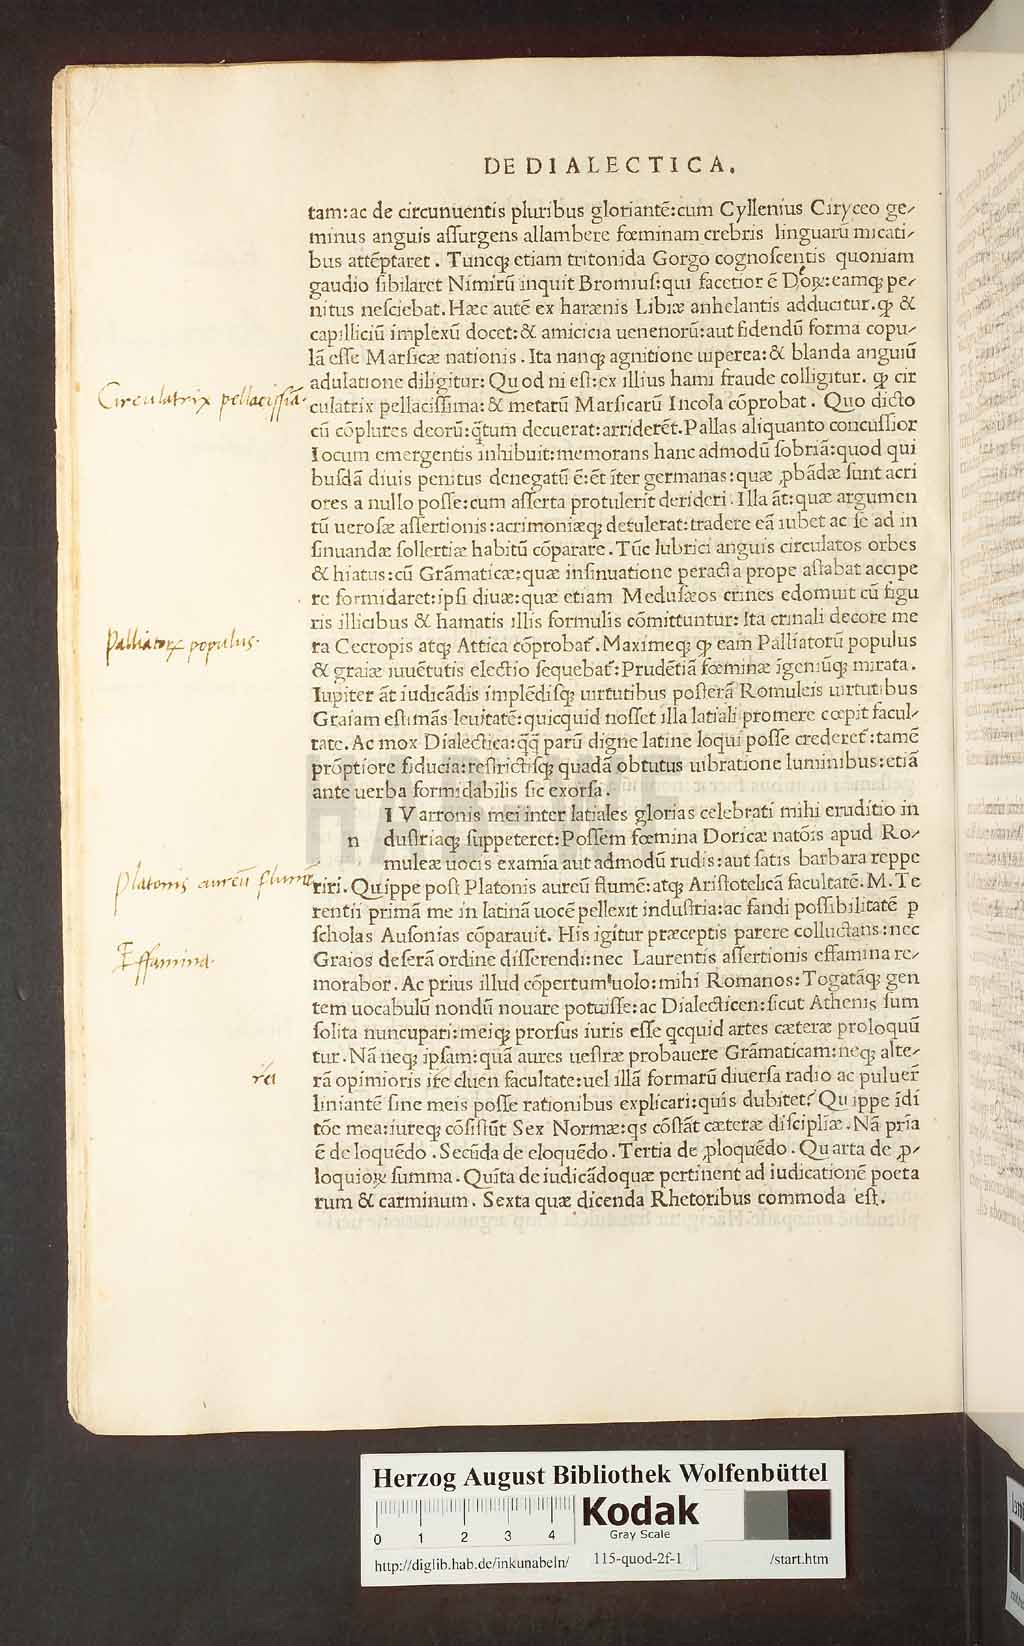 DE DIALECTICA.
tam:ac de circunuentis pluribus gloriantē:cum Cyllenius Ciryceo ge⸗
minus anguis aſſurgens allambere fœminam crebris linguarū micati⸗
bus attēptaret. Tuncqꝫ etiam tritonida Gorgo cognoſcentis quoniam
gaudio ſibilaret Nimirū inquit Bromius:qui facetior ē Doꝝ:eamqꝫ pe⸗
nitus neſciebat. Hæc autē ex harænis Libiæ anhelantis adducitur. qꝫ &
capilliciū implexū docet:& amicicia uenenorū:aut fidendū forma copu⸗
lā eſſe Marſicæ nationis. Ita nanqꝫ agnitione uiperea:& blanda anguiū
adulatione diligitur: Quod ni eſt:ex illius hami fraude colligitur. qꝫ cir
Circulatrix pellaciſſia.
culatrix pellaciſſima:& metarū Marſicarū Incola cōprobat. Quo dicto
cū cōplures deorū:q̄tum decuerat:arriderēt.Pallas aliquanto concuſſior
Iocum emergentis inhibuit:memorans hanc admodū ſobriā:quod qui
buſdā diuis penitus denegatū ē:ēt īter germanas:quæ ꝓbādæ ſunt acri
ores a nullo poſſe:cum aſſerta protulerit derideri. Illa āt:quæ argumen
tū uerofæ aſſertionis:acrimoniæqꝫ detulerat:tradere eā iubet ac ſe ad in
ſinuandæ ſollertiæ habitū cōparare. Tūc lubrici anguis circulatos orbes
& hiatus:cū Grāmaticæ:quæ inſinuatione peracta prope aſtabat accipe
re formidaret:ipſi diuæ:quæ etiam Meduſæos crines edomuit cū figu
ris illicibus & hamatis illis formulis cōmittuntur: Ita crinali decore me
Palliatoꝝ populus.
ra Cecropis atqꝫ Attica cōprobat̄. Maximeqꝫ qꝫ eam Palliatorū populus
& graiæ iuuētutis electio ſequebat̄:Prudētiā fœminæ īgeniūqꝫ mirata.
Iupiter āt iudicādis implēdiſqꝫ uirtutibus poſterā Romuleis uirtutibus
Graiam eſtimās leuitatē:quicquid noſſet illa latiali promere cœpit facul⸗
tate. Ac mox Dialectica:q̄q̄ parū digne latine loqui poſſe crederet̄:tamē
prōptiore fiducia:reſtrictiſqꝫ quadā obtutus uibratione luminibus:etiā
ante uerba formidabilis ſic exorſa.
I Varronis mei inter latiales glorias celebrati mihi eruditio in
n duſtriaqꝫ ſuppeteret:Poſſem fœmina Doricæ natōis apud Ro⸗
muleæ uocis examīa aut admodū rudis:aut ſatis barbara reppe
Platonis aureū flumē
riri. Quippe poſt Platonis aureū flumē:atqꝫ Ariſtotelicā facultatē. M. Te
rentii primā me in latinā uocē pellexit induſtria:ac fandi poſſibilitatē ꝑ
ſcholas Auſonias cōparauit. His igitur præceptis parere colluctans:nec
Effamina.
Graios deſerā ordinē differendi:nec Laurentis aſſertionis effamina re⸗
morabor. Ac prius illud cōpertum uolo:mihi Romanos:Togatāqꝫ gen
tem uocabulū nondū nouare potuiſſe:ac Dialecticen:ſicut Athenis ſum
ſolita nuncupari:meiqꝫ prorſus iuris eſſe qcquid artes cæteræ proloquū
tur. Nā neqꝫ ipſam:quā aures ueſtræ probauere Grāmaticam:neqꝫ alte⸗
ra
rā opimioris ite cluen facultate:uel illā formarū diuerſa radio ac puluer̄
liniantē ſine meis poſſe rationibus explicari:quis dubitet? Quippe īdi
tōe mea:iureqꝫ cōſiſtūt Sex Normæ:qs cōſtāt cæteræ diſcipliæ. Nā pria
ē de loquēdo. Secūda de eloquēdo. Tertia de ꝓloquēdo. Quarta de ꝓ⸗
loquioꝝ ſumma. Quīta de iudicādoquæ pertinent ad iudicationē poeta
rum & carminum. Sexta quæ dicenda Rhetoribus commoda eſt.
HAB-WF
Herzog August Bibliothek Wolfenbüttel
0 1 2 3 4
Kodak
Gray Scale
http://diglib.hab.de/inkunabeln/ 115-quod-2f-1 /start.htm